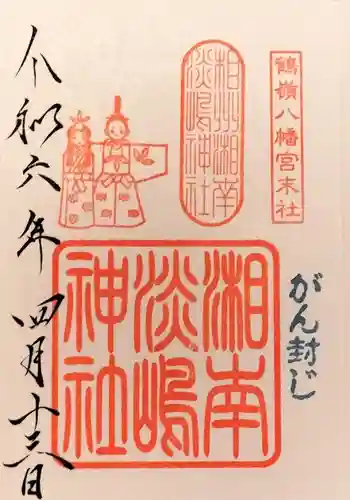 鶴嶺八幡宮末社
相州湘南
淡嶋神社
がん封じ
湘南
淡嶋
神社
令和六年 四月十三日